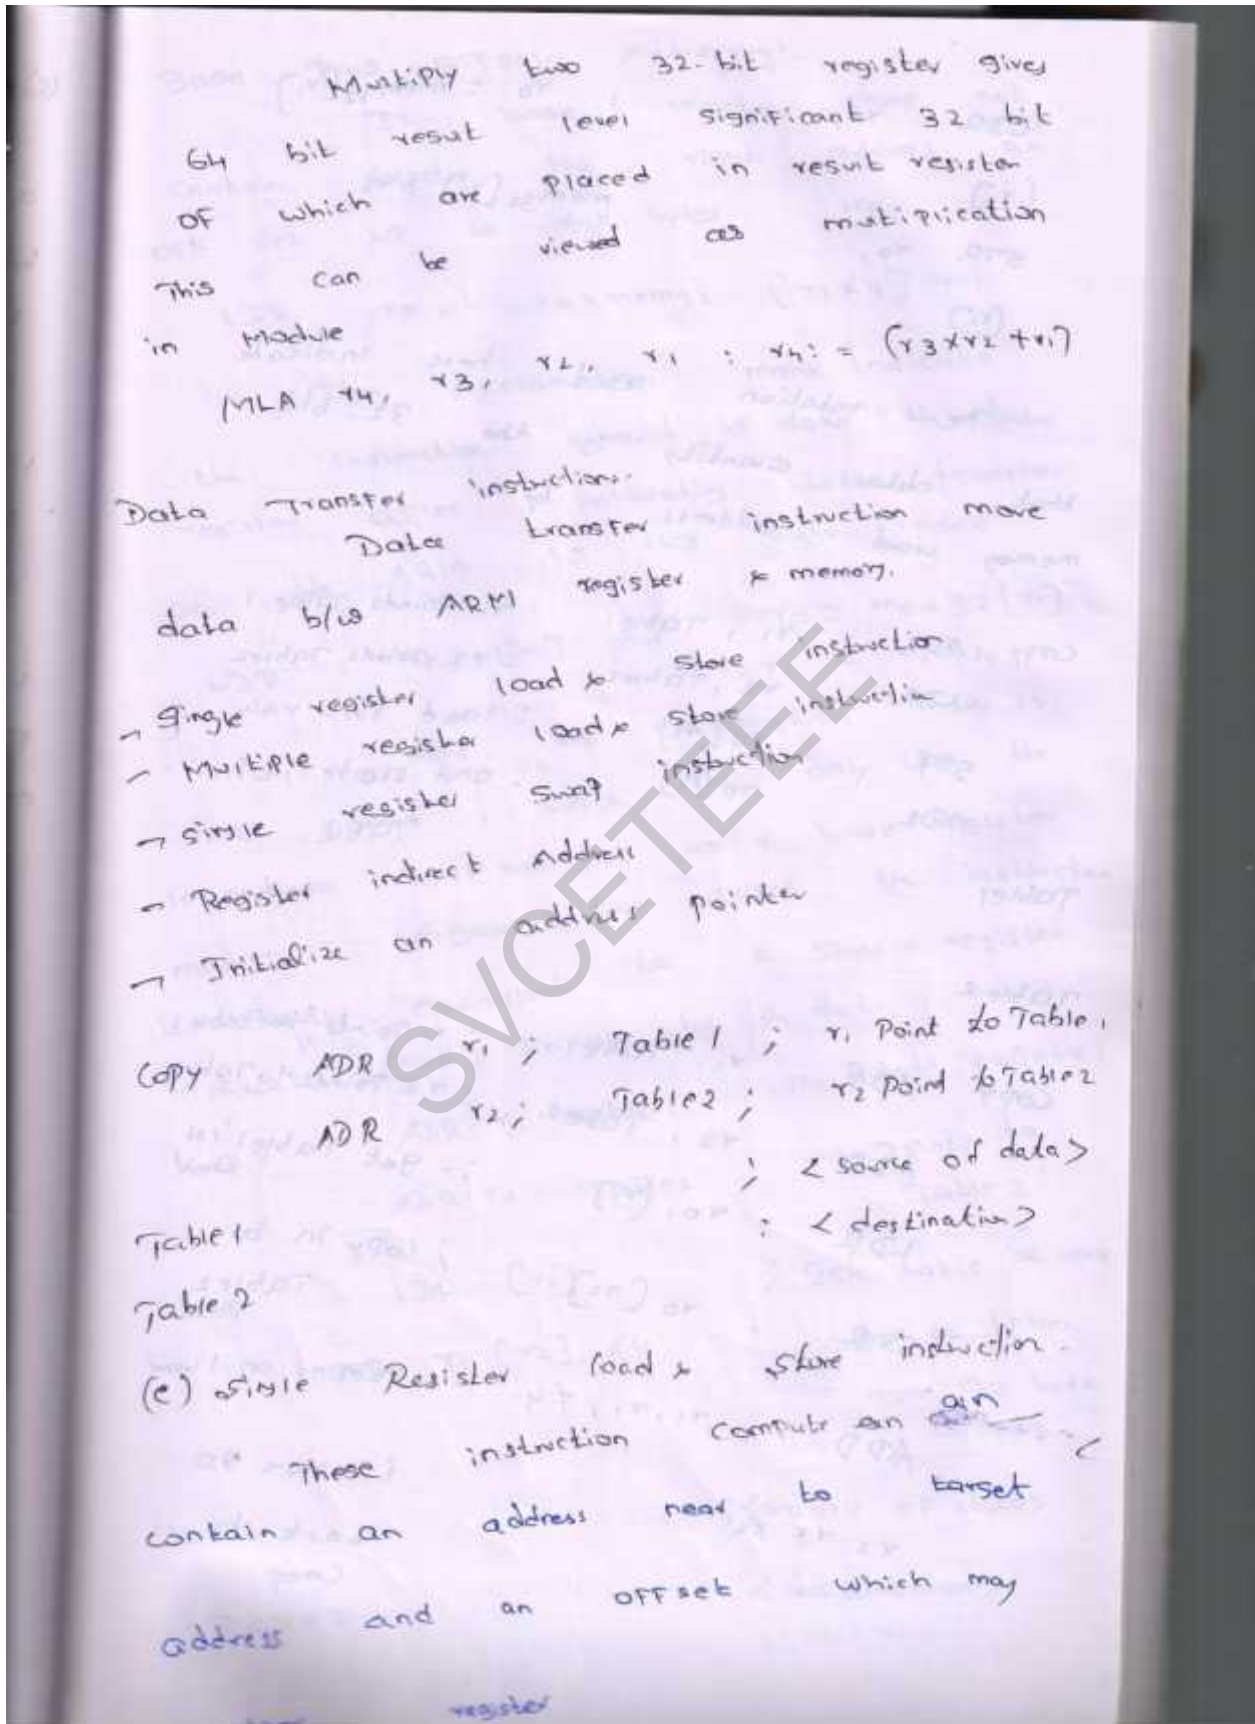 Multiply two 32-bit register gives
64 bit result level significant 32 bit
OF which are placed in result register
This can be viewed as multiplication
in Module
MLA r4, r3, r2, r1 ; r4: = (r3xr2 +r1)
Data Transfer instruction:-
Data transfer instruction move
data b/w ARM register & memory.
- Single register, load & store instruction
- Multiple register load & store instruction
- single register Swap instruction
- Register indirect Address
- Initialize an address pointer
COPY ADR r1 ; Table 1 ; r1 Point to Table 1
ADR r2 ; Table 2 ; r2 Point to Table 2
Table 1 ; < source of data >
Table 2 : < destination >
(e) Single Register load & store instruction.
These instruction compute an an
contain an address near to target
address and an OFFset which may
register
SVCETEEE